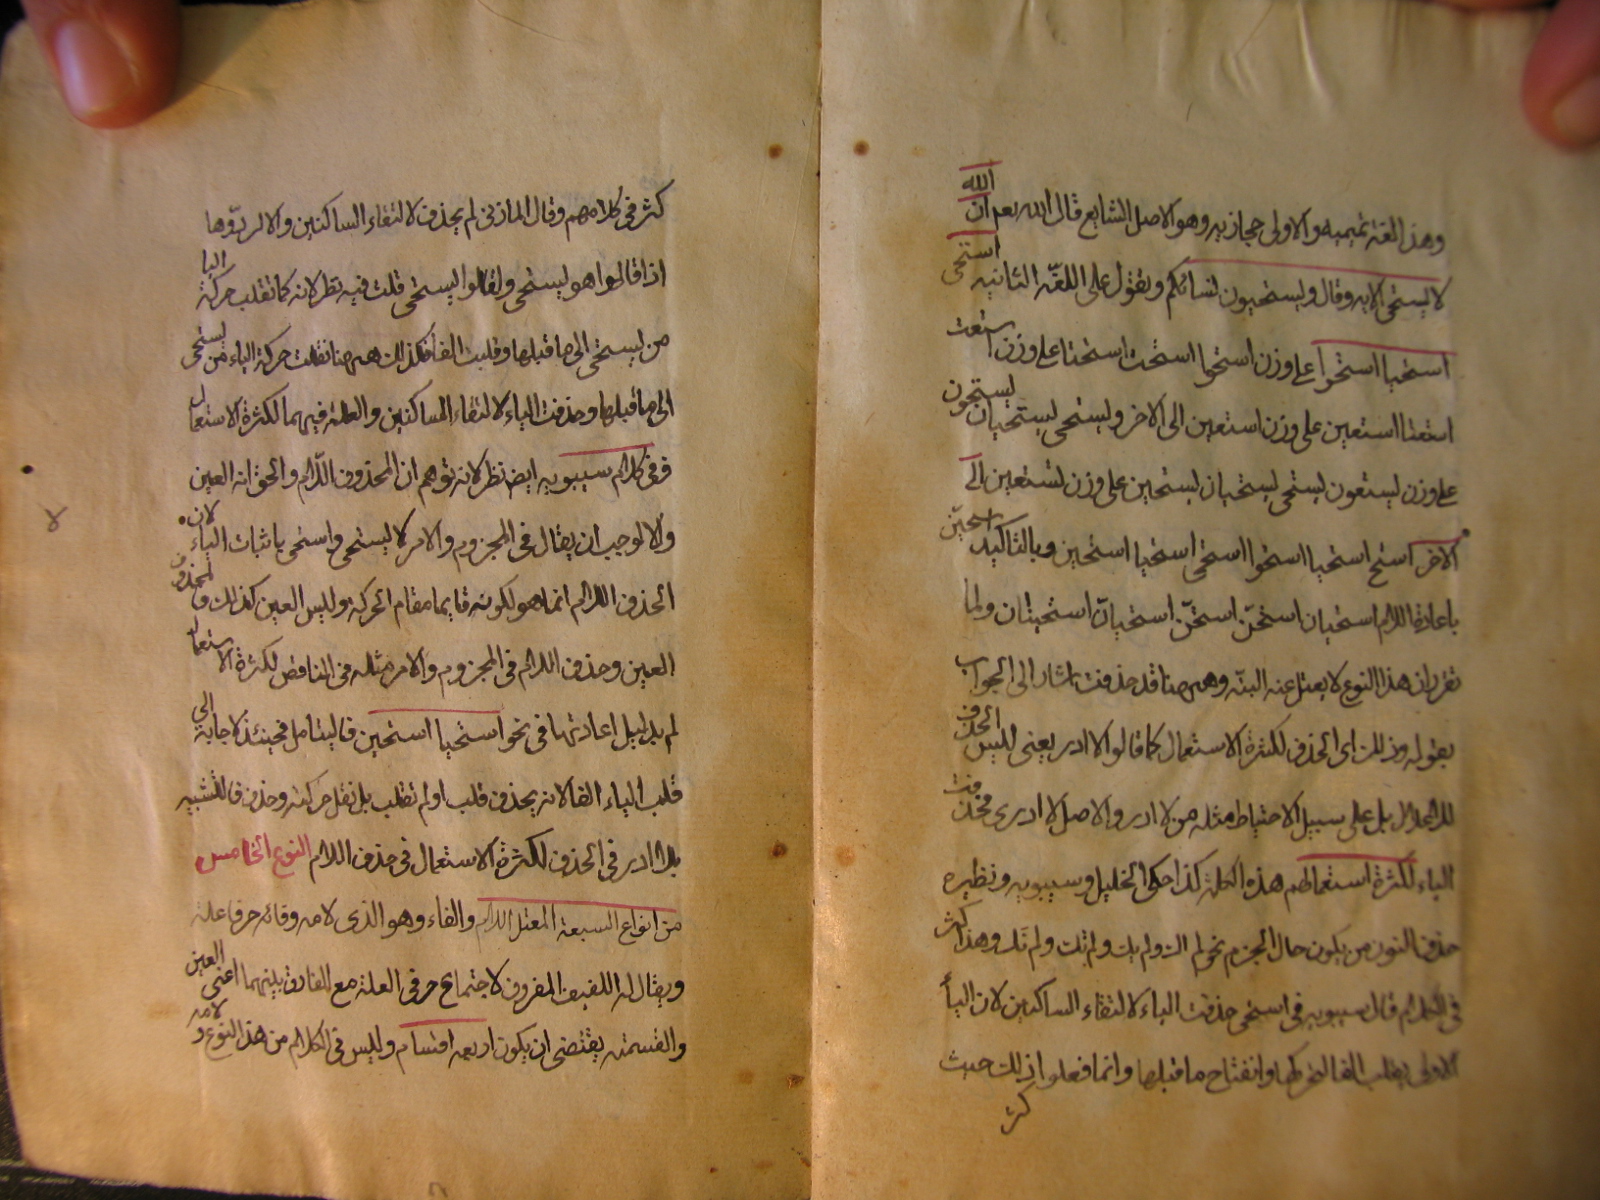 وهذه اللغة تميمية والاولى حجازية وهو الاصل الشايع قال الله تعم ان الله
لا يستحيى الاية وقال ويستحيون نسائكم وتقول على اللغة الثانيه استحى
استحيا استحوا على وزن استحوا استحت استحتا على وزن استعت
استعتا استعين على وزن استعين الى الاخر ويستحى يستحيان يستحون
على وزن يستعون يستحى يستحيان يستحين على وزن يستعين الى
الاخر استح استحيا استحوا استحى استحيا استحين وبالتاكيد استحين
باعادة اللام استحيان استحن استحن استحيان استحينان ولما
تقرر ان هذا النوع لا يعتل عينه البتة وههنا قد حذفت اشار الى الجواب
بقوله وذلك اى الحذف لكثرة الاستعمال كما قالوا لا ادر يعنى ليس الحذف
للاعلال بل على سبيل الاحتياط مثله من لا ادر والاصل لا ادرى فحذفت
الياء لكثرة استعمالهم هذه الكلمة كذا حكى الخليل وسيبويه ونظيره
حذف النون من يكون حال الجزم نحو لم اك ولم يك ولم تك ولم نك وهذا كثر
فى الكلام قال سيبويه فى استحى حذفت الياء لالتقاء الساكنين لان الياء
الاولى تقلب الفا لتحركها وانفتاح ما قبلها وانما فعلوا ذلك حيث
كثر
كثر فى كلامهم وقال المازنى لم يحذف لالتقاء الساكنين والا لردّوها
اذا قالوا هو يستحى ولقالوا يستحى قلت فيه نظر لانه كما تقلب حركة اليا
من يستحى الى ما قبلها وقلبت الفا فكذلك ههنا نقلت حركة الياء من يستحى
الى ما قبلها وحذفت الياء لالتقاء الساكنين والعلة فيهما لكثرة الاستعمال
ففى كلام سيبويه ايض نظر لانه توهم ان المحذوف اللام والحق انه العين
والا لوجب ان يقال فى المجزوم والامر لا يستحى واستحى باثبات الياء لان
الحذف اللام انما هو لكونه قايما مقام الحركة وليس العين كذلك والمحذوف
العين وحذف اللام فى المجزوم والامر مثله فى الناقص لكثرة الاستعمال
لم بدليل اعادتها فى نحو استحيا استحين فاليتامل فحينئذ لا حاجة الى
قلب الياء الفا لانه يحذف قلب او لم تقلب بل نقل حركته وحذف فالتشبيه
بلا ادر فى الحذف لكثرة الاستعمال فى حذف اللام النوع الخامس
من انواع السبعة المعتل اللام والفاء وهو الذى لامه وفائه حرفا علة
ويقال له اللفيف المفروق لاجتماع حرفى العلة مع الفارق بينهما اعنى العين
والقسمة يقتضى ان يكون اربعه اقسام وليس فى الكلام من هذا النوع ولامه